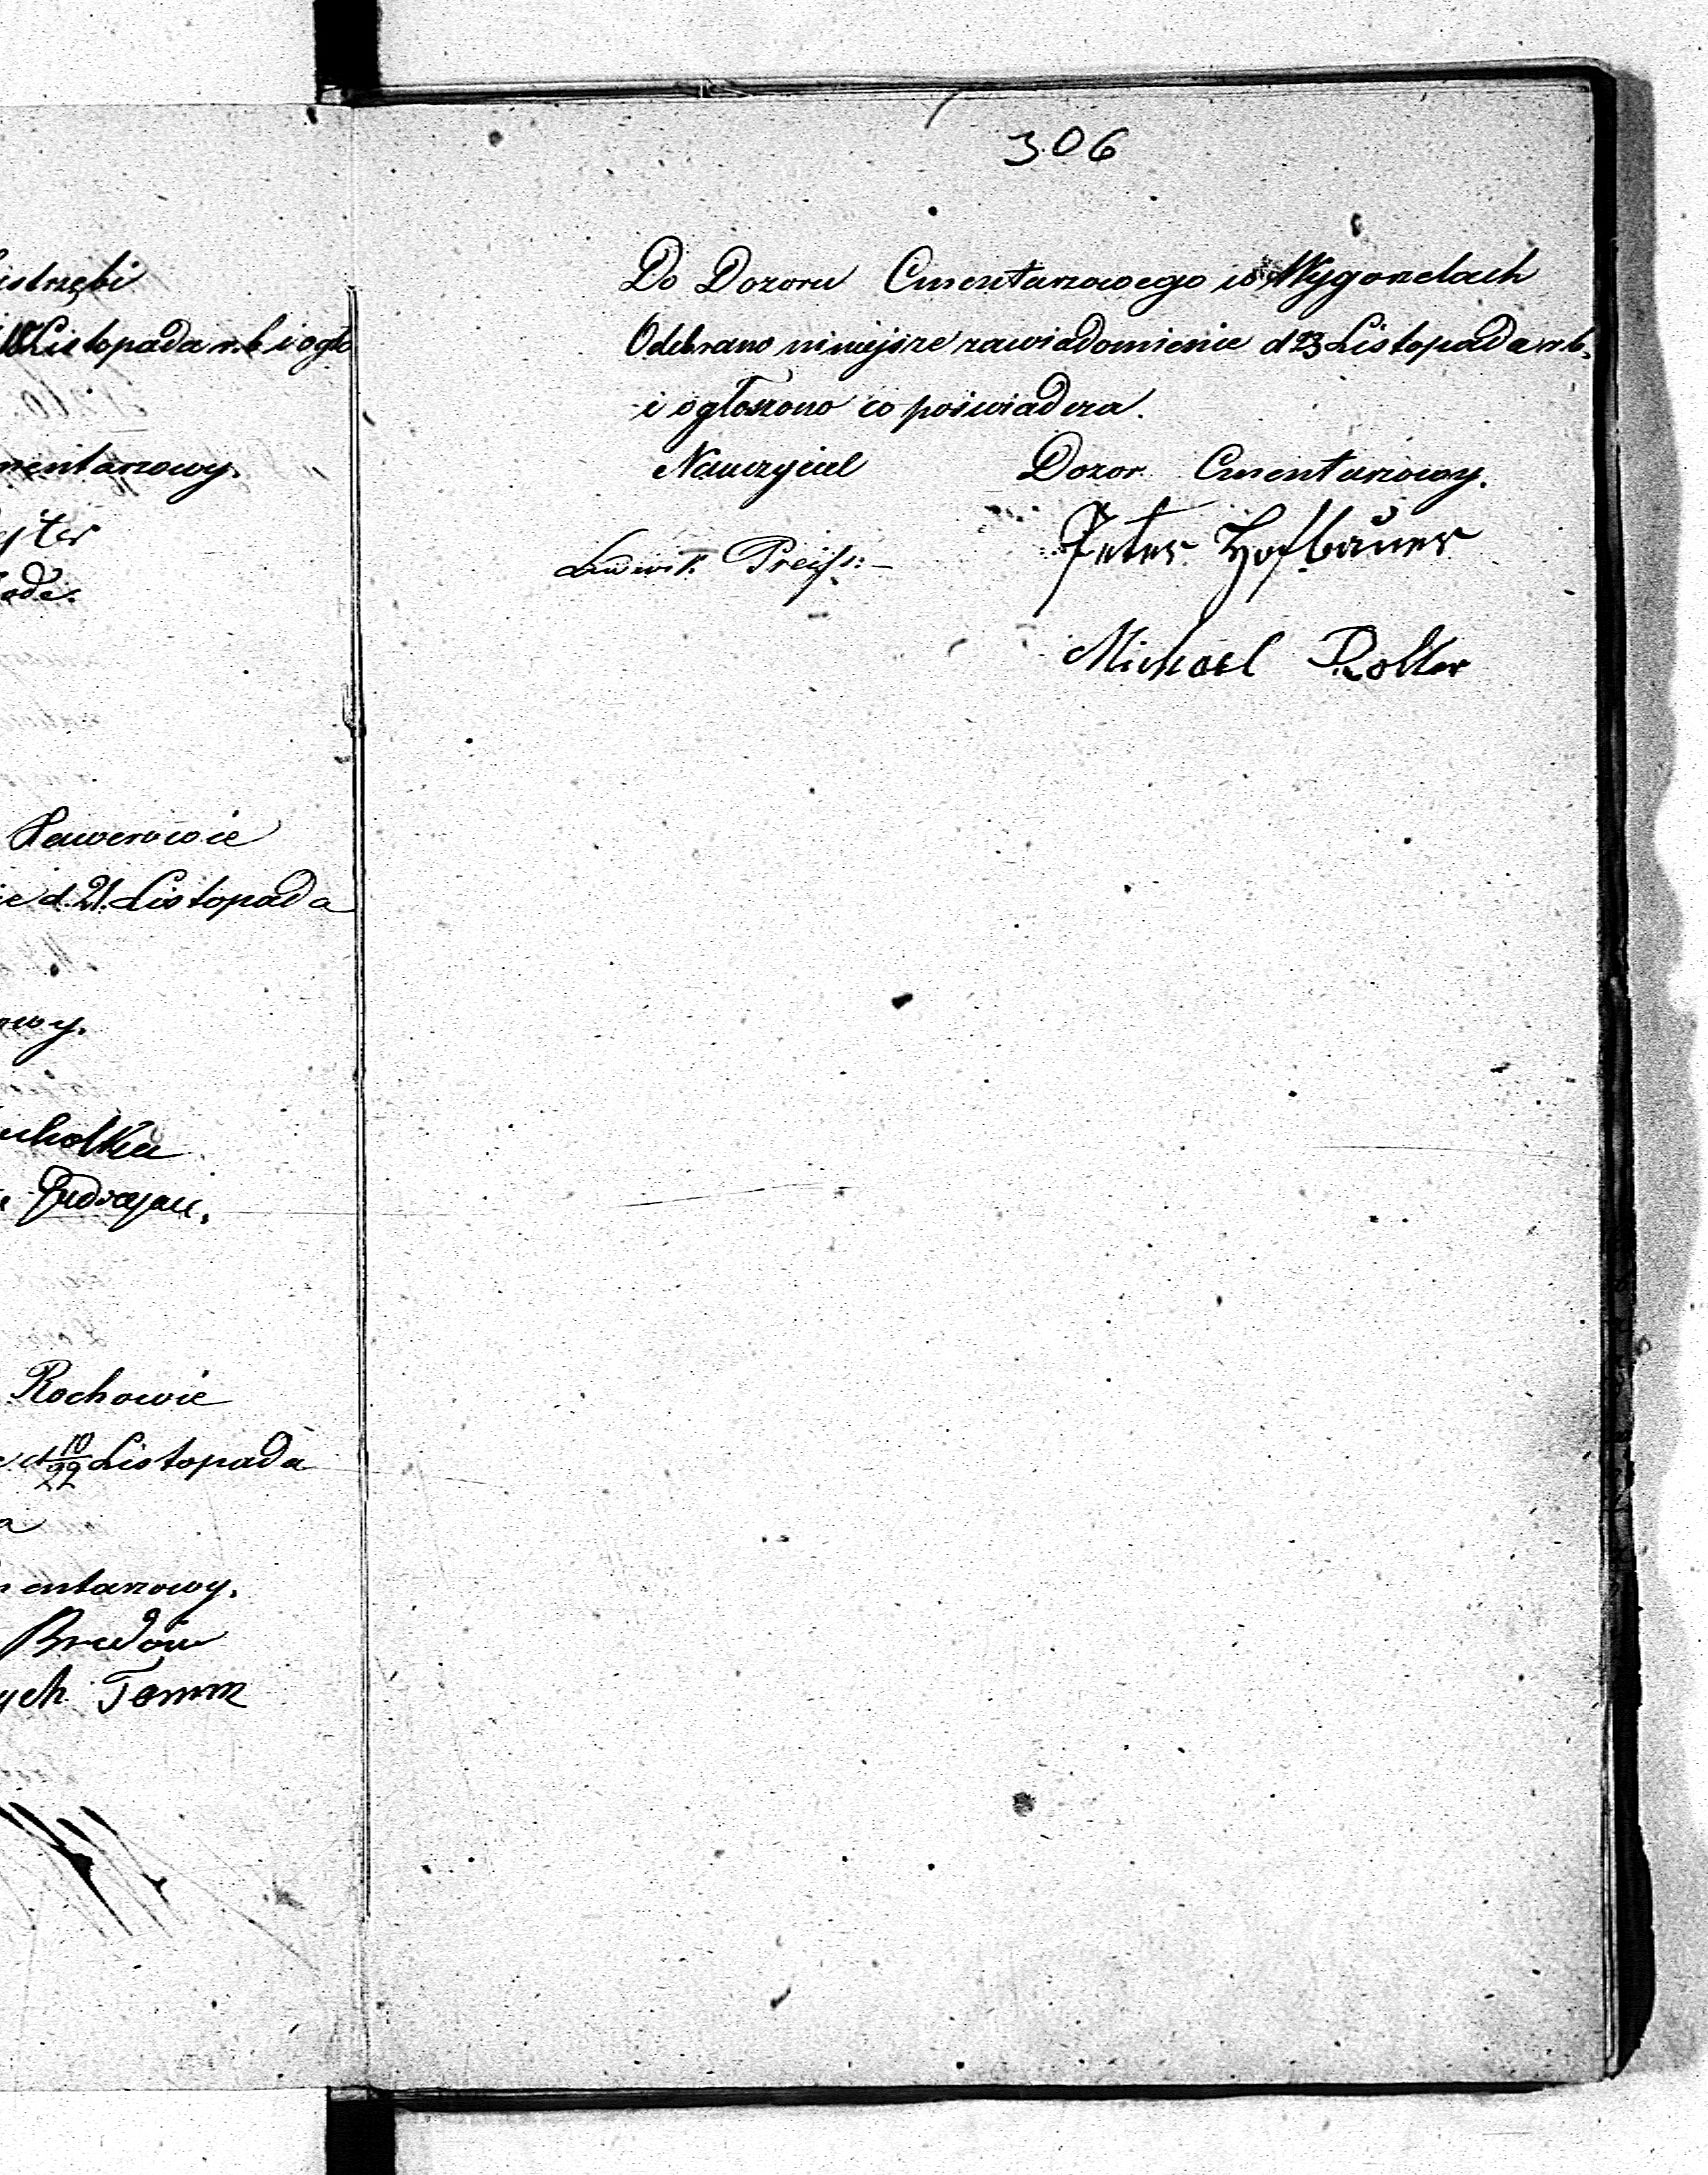 istrzębi
Listopada r.b. i ogło
mentarzowy.
ade.
Ławerowie
ie d. 21. Listopada
owy.
ucholka
Rochowie
d 10/22 Listopada
a
entarzowy.
Bredow
ych Temm
306
Do Dozoru Cmentarzowego w Wygorzelach
Odebrano niniejsze zawiadomienie d 23 Listopada r.b.
i ogłoszono co poświadcza.
Nauczyciel Dozor Cmentarzowy.
Ludwik Preiss Peter Hofbauer
Michael Roller